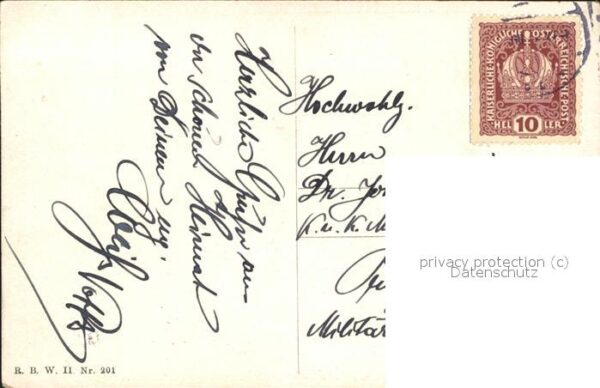 Herzliche Grüße aus
der schönen Heimat
von Deinem
KAISERLICHE KÖNIGLICHE ÖSTERREICHISCHE POST
HELLER
10
Hochwohlg.
Herrn
Dr.
K. u. K.
Militär
privacy protection (c)
Datenschutz
R. B. W. II. Nr. 201